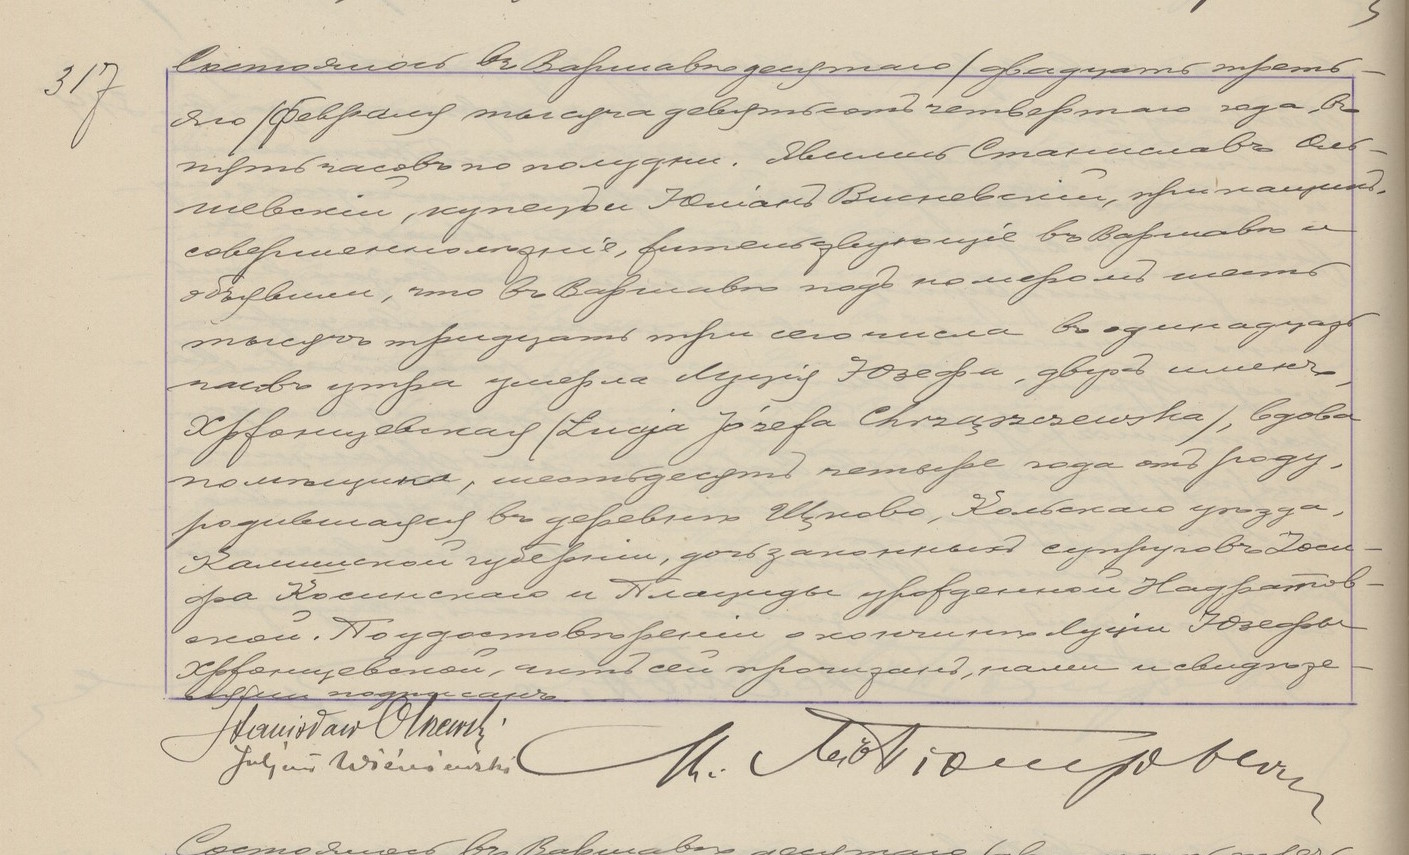 317
Состоялось въ Варшавѣ десятаго /двадцать треть-
яго/ февраля тысяча девятьсотъ четвертаго года, въ
пять часовъ по полудни. Явились Станиславъ Оль-
шевскій, купецъ и Юліанъ Висневскій, прикащикъ,
совершеннолѣтніе, жительствующіе въ Варшавѣ и
объявили, что въ Варшавѣ подъ номеромъ шесть
тысячъ тридцать три сего числа въ одинадцать
часовъ утра умерла Луція Юзефа, двухъ именъ,
Хржонщевская /Łucja Józefa Chrząszczewska/, вдова
помѣщика, шестьдесятъ четыре года отъ роду,
родившаяся въ деревнѣ Кольскаго уѣзда,
Калишской губерніи, дочь законныхъ супруговъ Іоси-
фа Косинскаго и Плациды урожденной
ской. По удостовѣреніи о кончинѣ Луціи Юзефы
Хржонщевской, актъ сей прочитанъ, нами и свидѣте-
лями подписанъ
Stanisław
Juljan Wiśniewski
Состоялось въ Варшавѣ десятаго